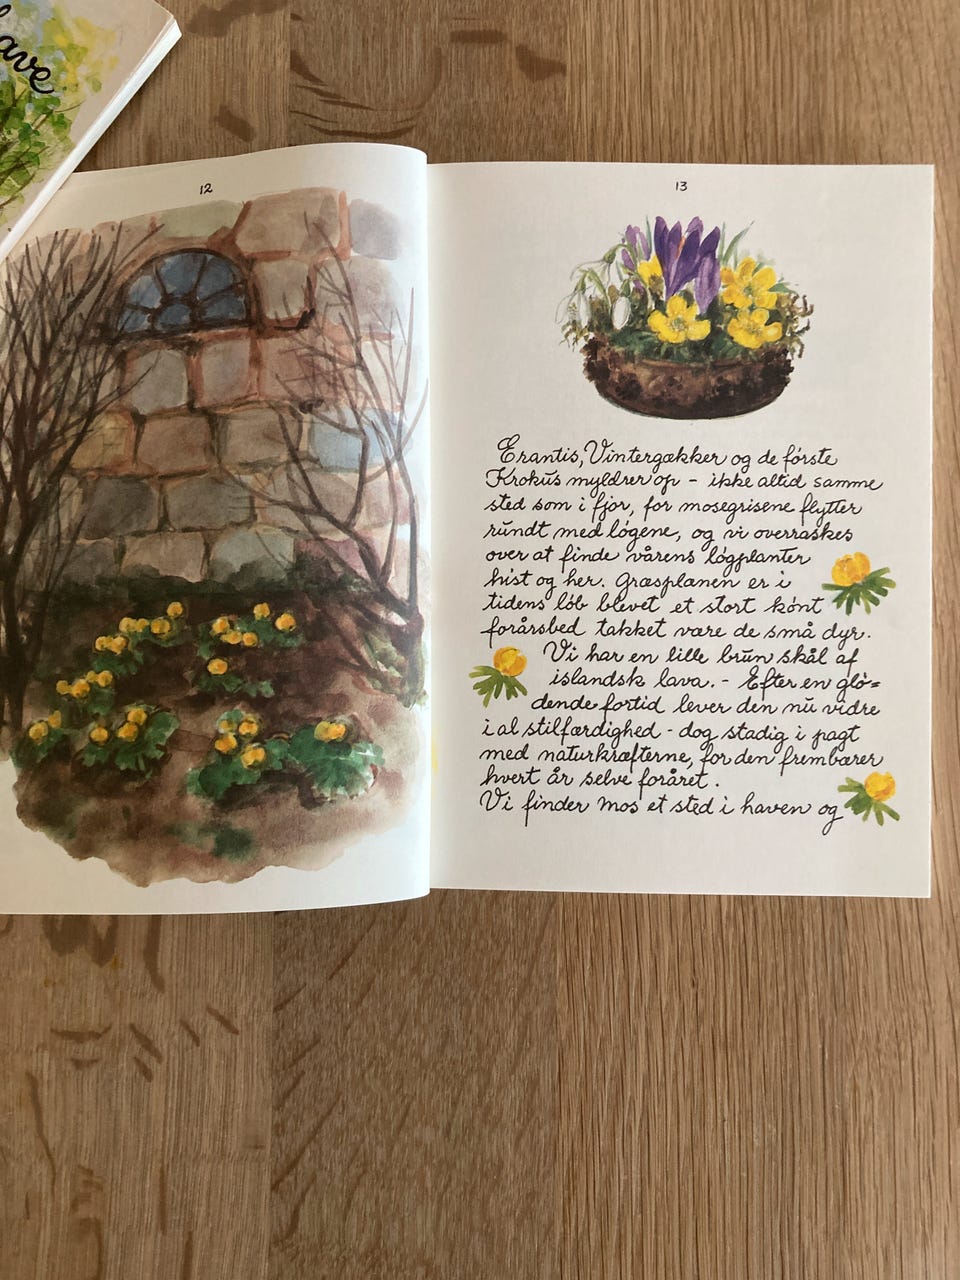 ave
12
13
Erantis, Vintergækker og de første
Krokus myldrer op - ikke altid samme
sted som i fjor, for mosegrisene flytter
rundt med løgene, og vi overraskes
over at finde vårens løgplanter
hist og her. Græsplænen er i
tidens løb blevet et stort kønt
forårsbed takket være de små dyr.
Vi har en lille brun skål af
islandsk lava. - Efter en glø=
dende fortid lever den nu vidre
i al stilfærdighed - dog stadig i pagt
med naturkræfterne, for den frembærer
hvert år selve foråret.
Vi finder mos et sted i haven og